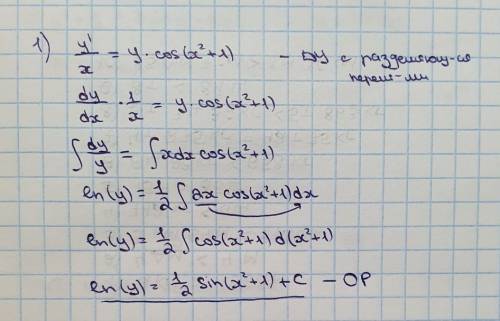 1) y'/x = y·cos(x²+1) – ДУ с разделяющ-ся
перем-ми
dy/dx · 1/x = y·cos(x²+1)
∫ dy/y = ∫ xdx cos(x²+1)
ln(y) = 1/2 ∫ 2x cos(x²+1)dx
ln(y) = 1/2 ∫ cos(x²+1) d(x²+1)
ln(y) = 1/2 sin(x²+1) + C – ОР